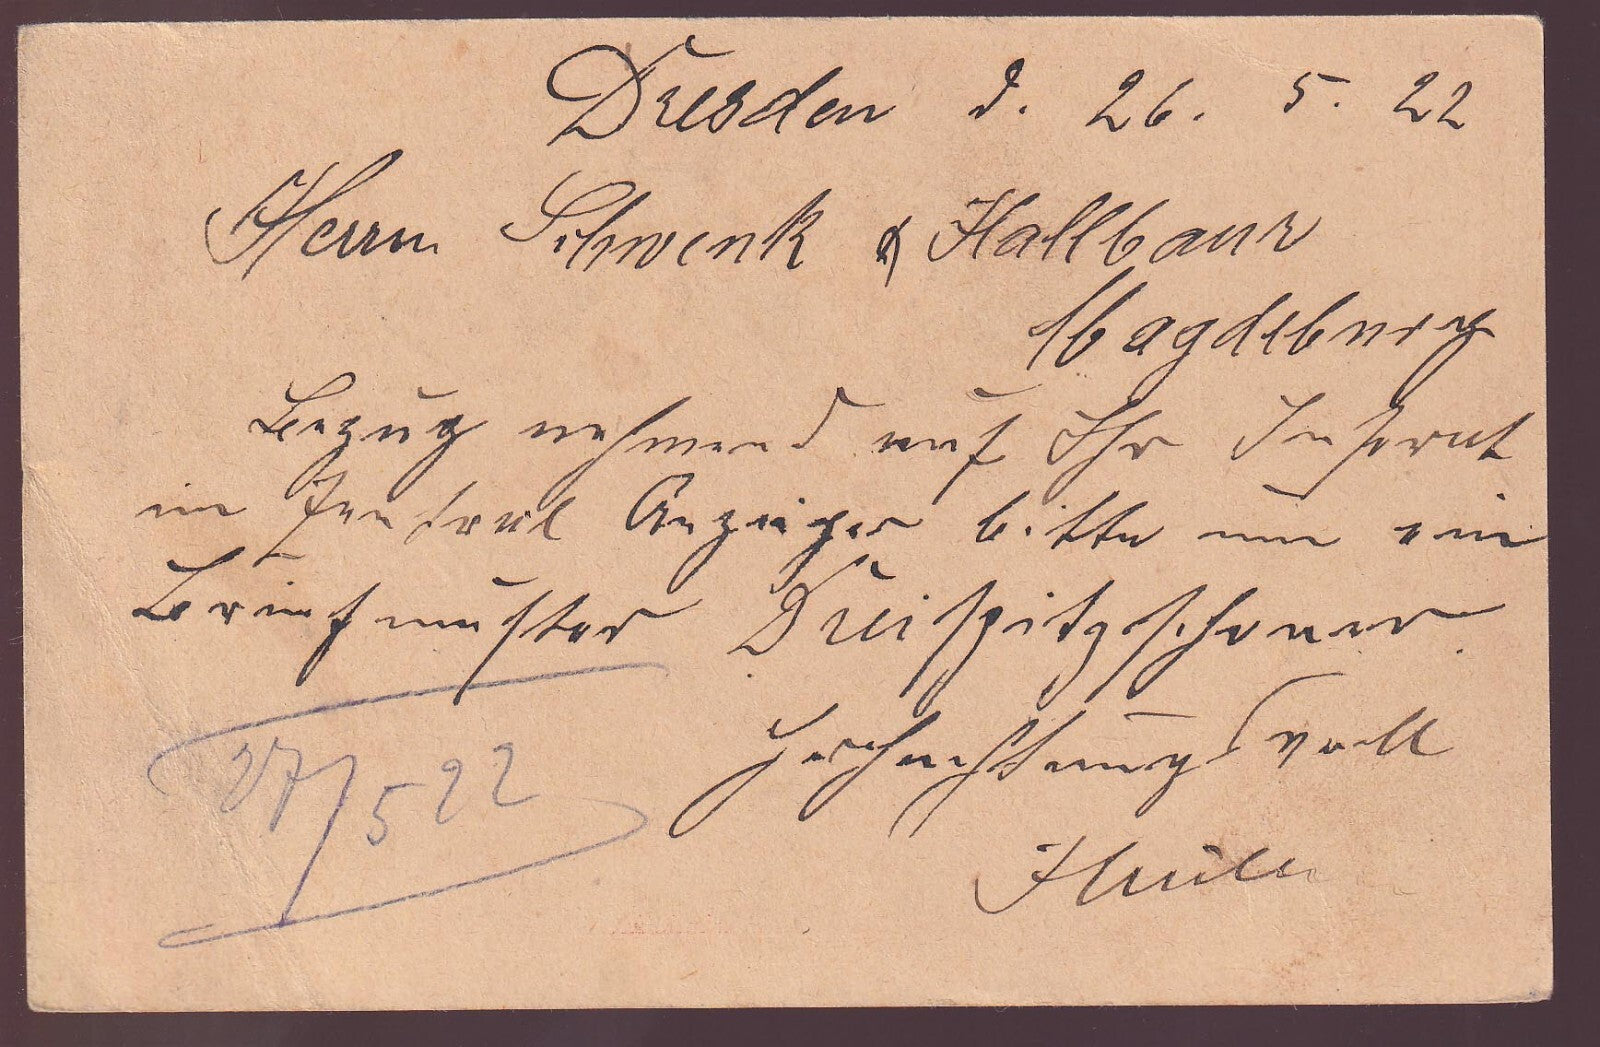 Dresden d. 26. 5. 22
Herrn Schwenk & Hallbaur
Magdeburg
Bezug nehmend auf Ihr Inserat
im Zentral Anzeiger bitte um ein
Briefmuster Dreispitzschoner.
Hochachtungsvoll
27/5 22